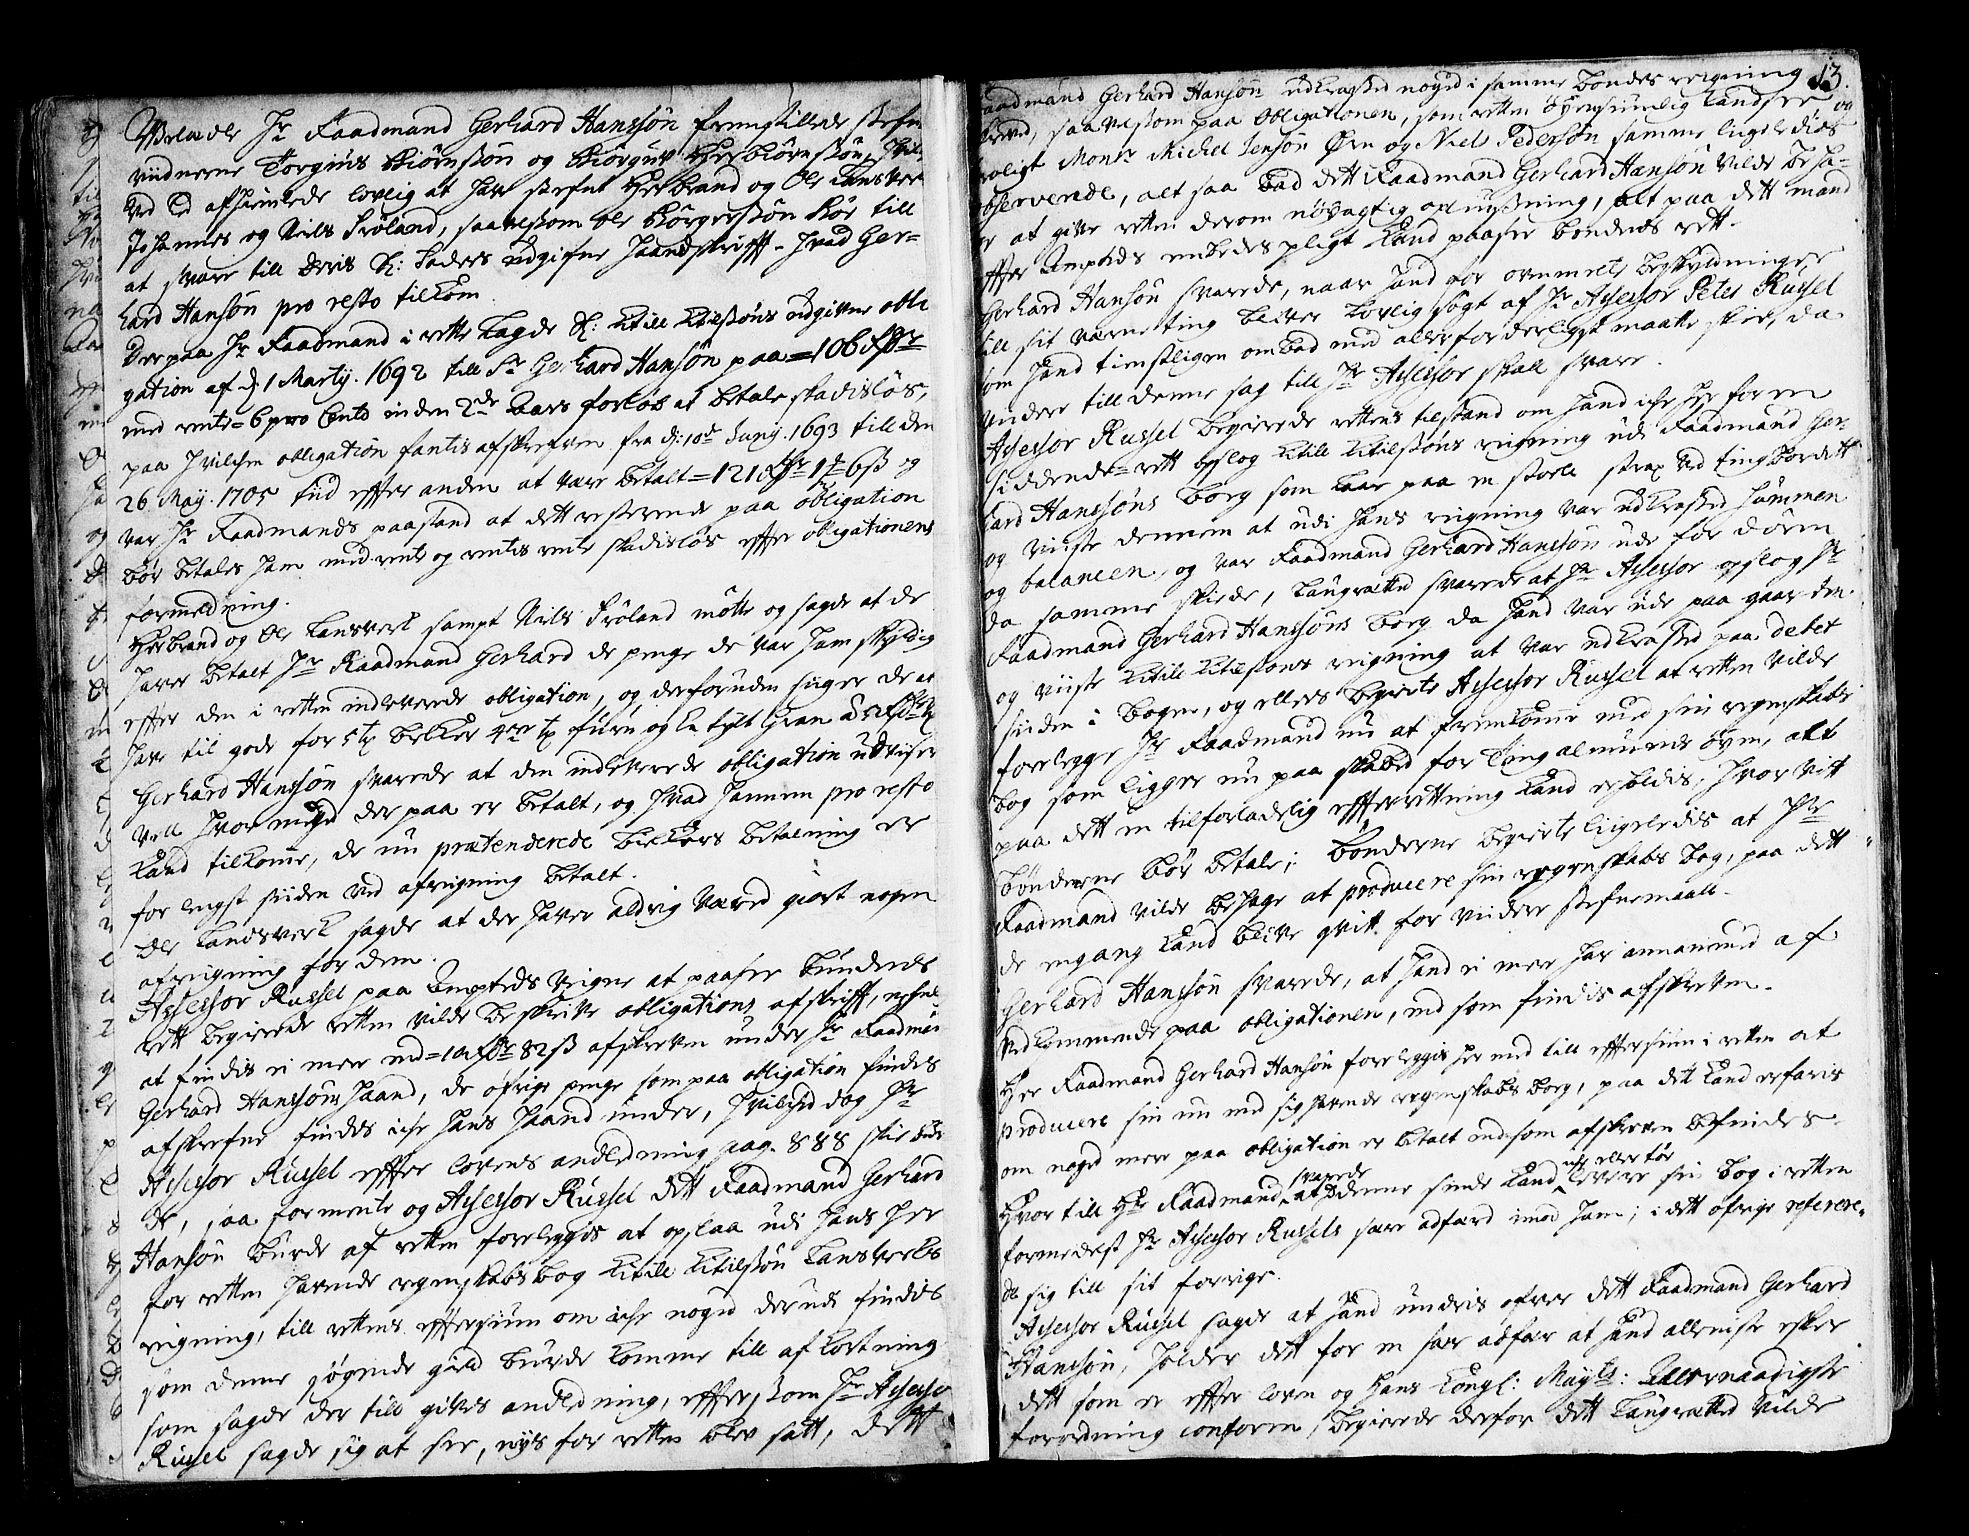 Velædle Hr Raadmand Gerhard Hanssøn fremstillede stefne
vidnerne Torgius Biørnssøn og Biørgus Herbiørnssøn, hvil
ved Ed afhiemlede lovlig at have stefnt Herbrand og Ole Lansverk
Johannes og Niels Frøland, saavelsom Ole Børgerssøn Bøe till
at svare till deris Sl: Faders udgifne haandskrifft, hvad Ger=
hard Hanssøn pro resto tilkom.
Derpaa Hr Raadmand i rette lagde Sl: Kitill Kitilssøns udgifne obli
gation af d 1 Martij. 1692 till Sr Gerhard Hanssøn paa = 106 Rdr
med rente = 6 pro Cento inden 2de Aars forløb at betale skadisløs,
paa hvilchen obligation fantis afskrefven fra d: 10de Junij. 1693 till den
26 Maij. 1705 tiid effter anden at være betalt = 121 Rdr 1 6 s og
var Hr Raadmands paastand at dett resterende paa obligation
bør betales ham med rente og rentis rente skadisløs effter obligationens
formeldning.
Herbrand og Ole Lansverk sampt Niels Frøland møtte og sagde at de
haver betalt Hr Raadmand Gerhard de penge de var ham skyldig
effter den i retten indleverede obligation, og desforuden siiger de at
have til gode for 5 tz bielker 4re tz furu og en tylt Gran
Gerhard Hanssøn svarede at den indleverede obligation udviser
vell hvor meget der paa er betalt, og hvad hannem pro resto
kand tilkomme, de nu prætenderede bielkers betalning er
for lengst siiden ved afreigning betalt.
Ole Landsverk sagde at der haver aldrig været giort nogen
afreigning for dem.
Assessor Russel paa Amptets Veigne at paasee bundens
rett begierede retten vilde beskrive obligations afskrifft,
at findis ei mere end = 101 82 s afskreven under Hr Raadmd
Gerhard Hanssøns haand, de øfrige penge som paa obligation findes
afskrefne findes iche hans haand under, hvilchet dog Hr
Assessor Russel effter lovens andledning pag. 888 skie bur
de, saa formente og Assessor Russel dett Raadmand Gerhard
Hansøn burde af retten foreleggis at opslaa udi hans her
for retten havende regenskabs bog Kitill Kitilssøn Lansverks
reigning, till rettens effterssiun om iche noget derudi findis
som denne søgende gield burde komme till afkortning
som sagde der till gives andledning, effter som Hr Assessor
Russel sagde sig at see, nys for retten blev satt, dett

13
Raadmand Gerhard Hanssøn udkrasted noget i samme bondes reigning
, saavelsom paa Obligationen, som retten øyensiunlig kand see og
Monsr Michel Jensøn Ørn og Niels Pedersøn samme ligeledis
observerede, alt saa bad dett Raadmand Gerhard Hanssøn vilde beha=
ge at give retten derom nøyagtig oplyssning, alt paa dett mand
effter Amptets embedes pligt kand paasee bondens rett.
Gerhard Hansøn svarede, naar hand for ommelte beskyldninger
till sit værneting bliver lovlig søgt af Hr Assessor Peter Russel
som hand tienstligen ombad med allerforderligst maatte skee, da
videre till denne sag till Hr Assessor skall svare.
Assessor Russel begierede rettens tilstand om hand iche her for en
siddende = rett opslog Kitill Kitilssøns reigning udi Raadmand Ger=
hard Hanssøns borg som laae paa en stoell strax ved tingbordet
og viiste dennem at udi hans reigning var udkrasted Summen
og balancen, og var Raadmand Gerhard Hanssøn ude for dören
da samme skiede, Laugretted svarede at Hr Assessor opslog Hr
Raadmand Gerhard Hanssøns borg da hand var ude paa gaarden
og viiste Kitill Kitilssøns reigning at var udkrasted paa debet
siiden i bogen, og ellers begierte Assessor Russel at retten vilde
forelegge Hr Raadmand nu at fremkomme med sin regenskabs
bog som ligger nu paa skabet for Tingalmuens øyen, alt
paa dett en tilforladelig effterrettning kand erholdis, hvor vit
bønderne bør betale; Bønderne begierte ligeledis at Hr
Raadmand vilde behage at producere sin regenskabs bog, paa dett
de engang kand blive qvitt for videre stefnemaall.
Gerhard Hanssøn svarede, at hand ei mere har annammed af
vedkommende paa obligationen, end som findis afskreven.
Hr Raadmand Gerhard Hansøn foreleggis her med till efftersiun i retten at
producere sin nu med sig havende regenskabs borg, paa dett kand erfaris
om noget mere paa obligation er betalt end som afskreven befindes.
Hvor till Hr Raadmand svarede at denne sinde kand iche eller tør levere sin bog i retten
formedelst Hr Assessor Russels sære adfærd imod ham; i dett øfrige referere=
de sig till sit forrige.
Assessor Russel sagde at hand undris ofver dett Raadmand Gerhard
Hanssøn, holder dett for en sær adfær at hand alleniste esker
dett som er effter loven og Hans Kongl: Mayts: Allernaadigste
forordning conform, begierede derfor dett Laugretted vilde